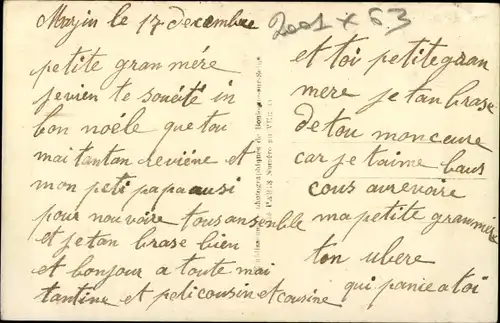 Majin le 17 decembre
2001 x 63
petite gran mére
je vien te souéité in
bon noéle que tou
mai tantan reviéne et
mon peti papa ausi
pour nou voire tous ansenble
et je tan brase bien
et bonjour a toute mai
tantine et peti cousin et cousine
et toi petite gran
mere je tan brase
de tou mon ceure
car je t'aime baus
cous aurevoire
ma petite gran mere
ton ubere
qui panie a toi